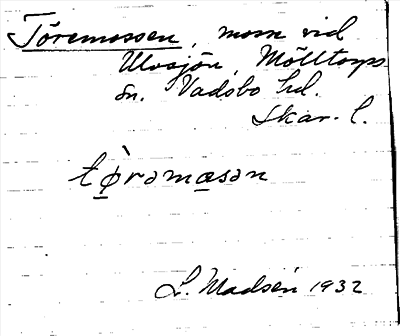 Töremossen, mosse vid
Ulvsjön, Mölltorps
sn. Vadsbo hd.
Skar. l.
tø̀rəmasən
L. Madsén 1932